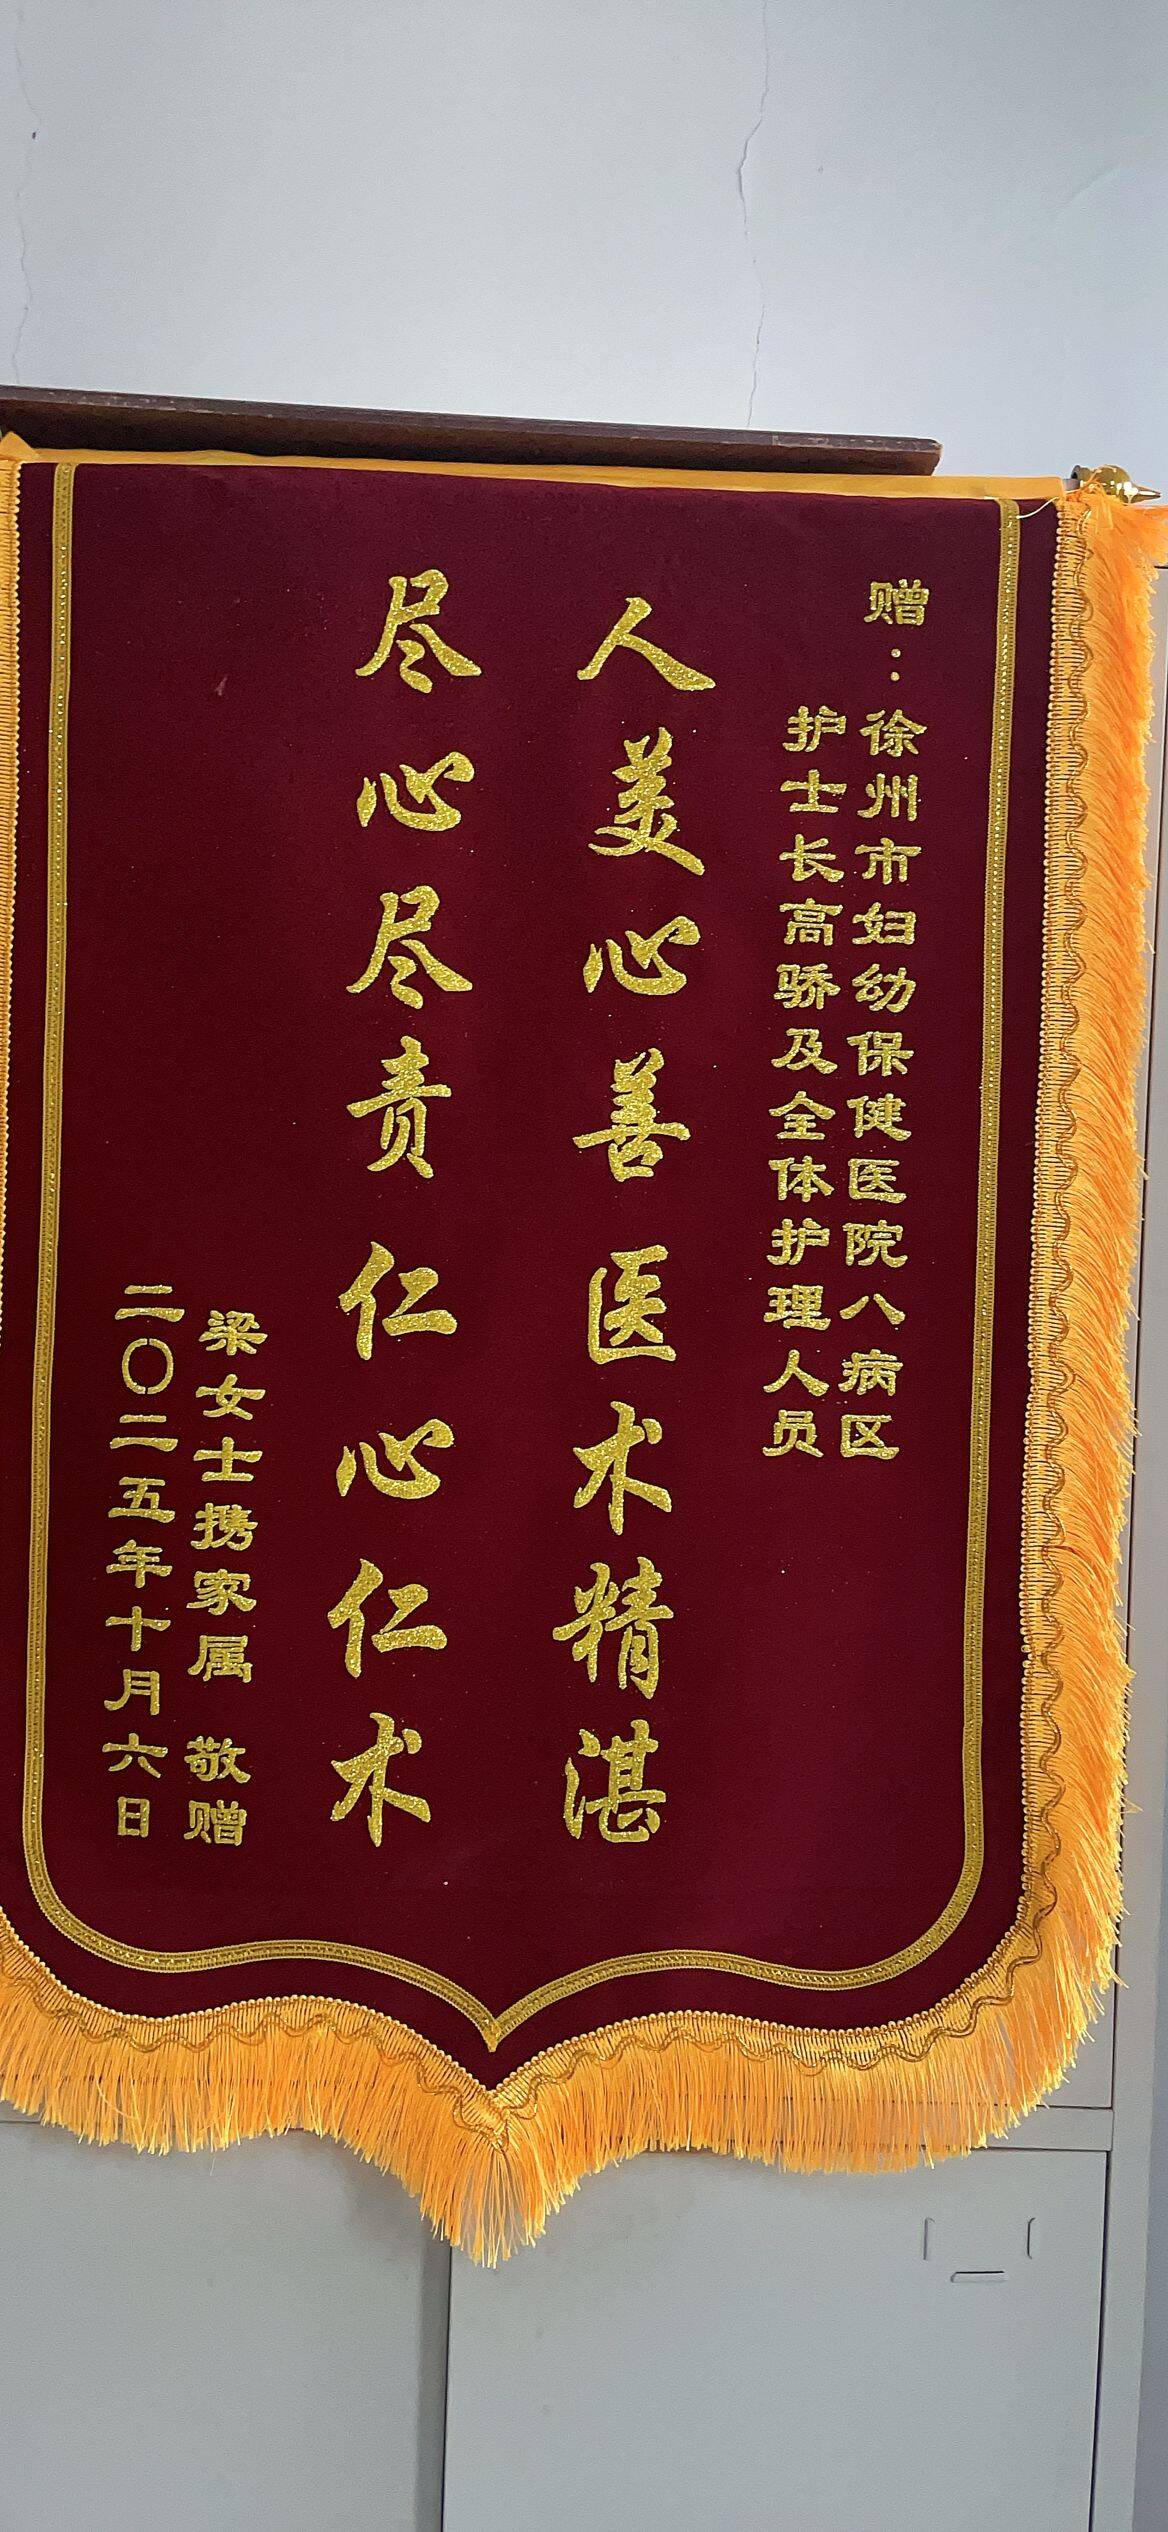 赠：徐州市妇幼保健医院八病区
护士长高骄及全体护理人员
人美心善医术精湛
尽心尽责仁心仁术
梁女士携家属 敬赠
二〇二五年十月六日